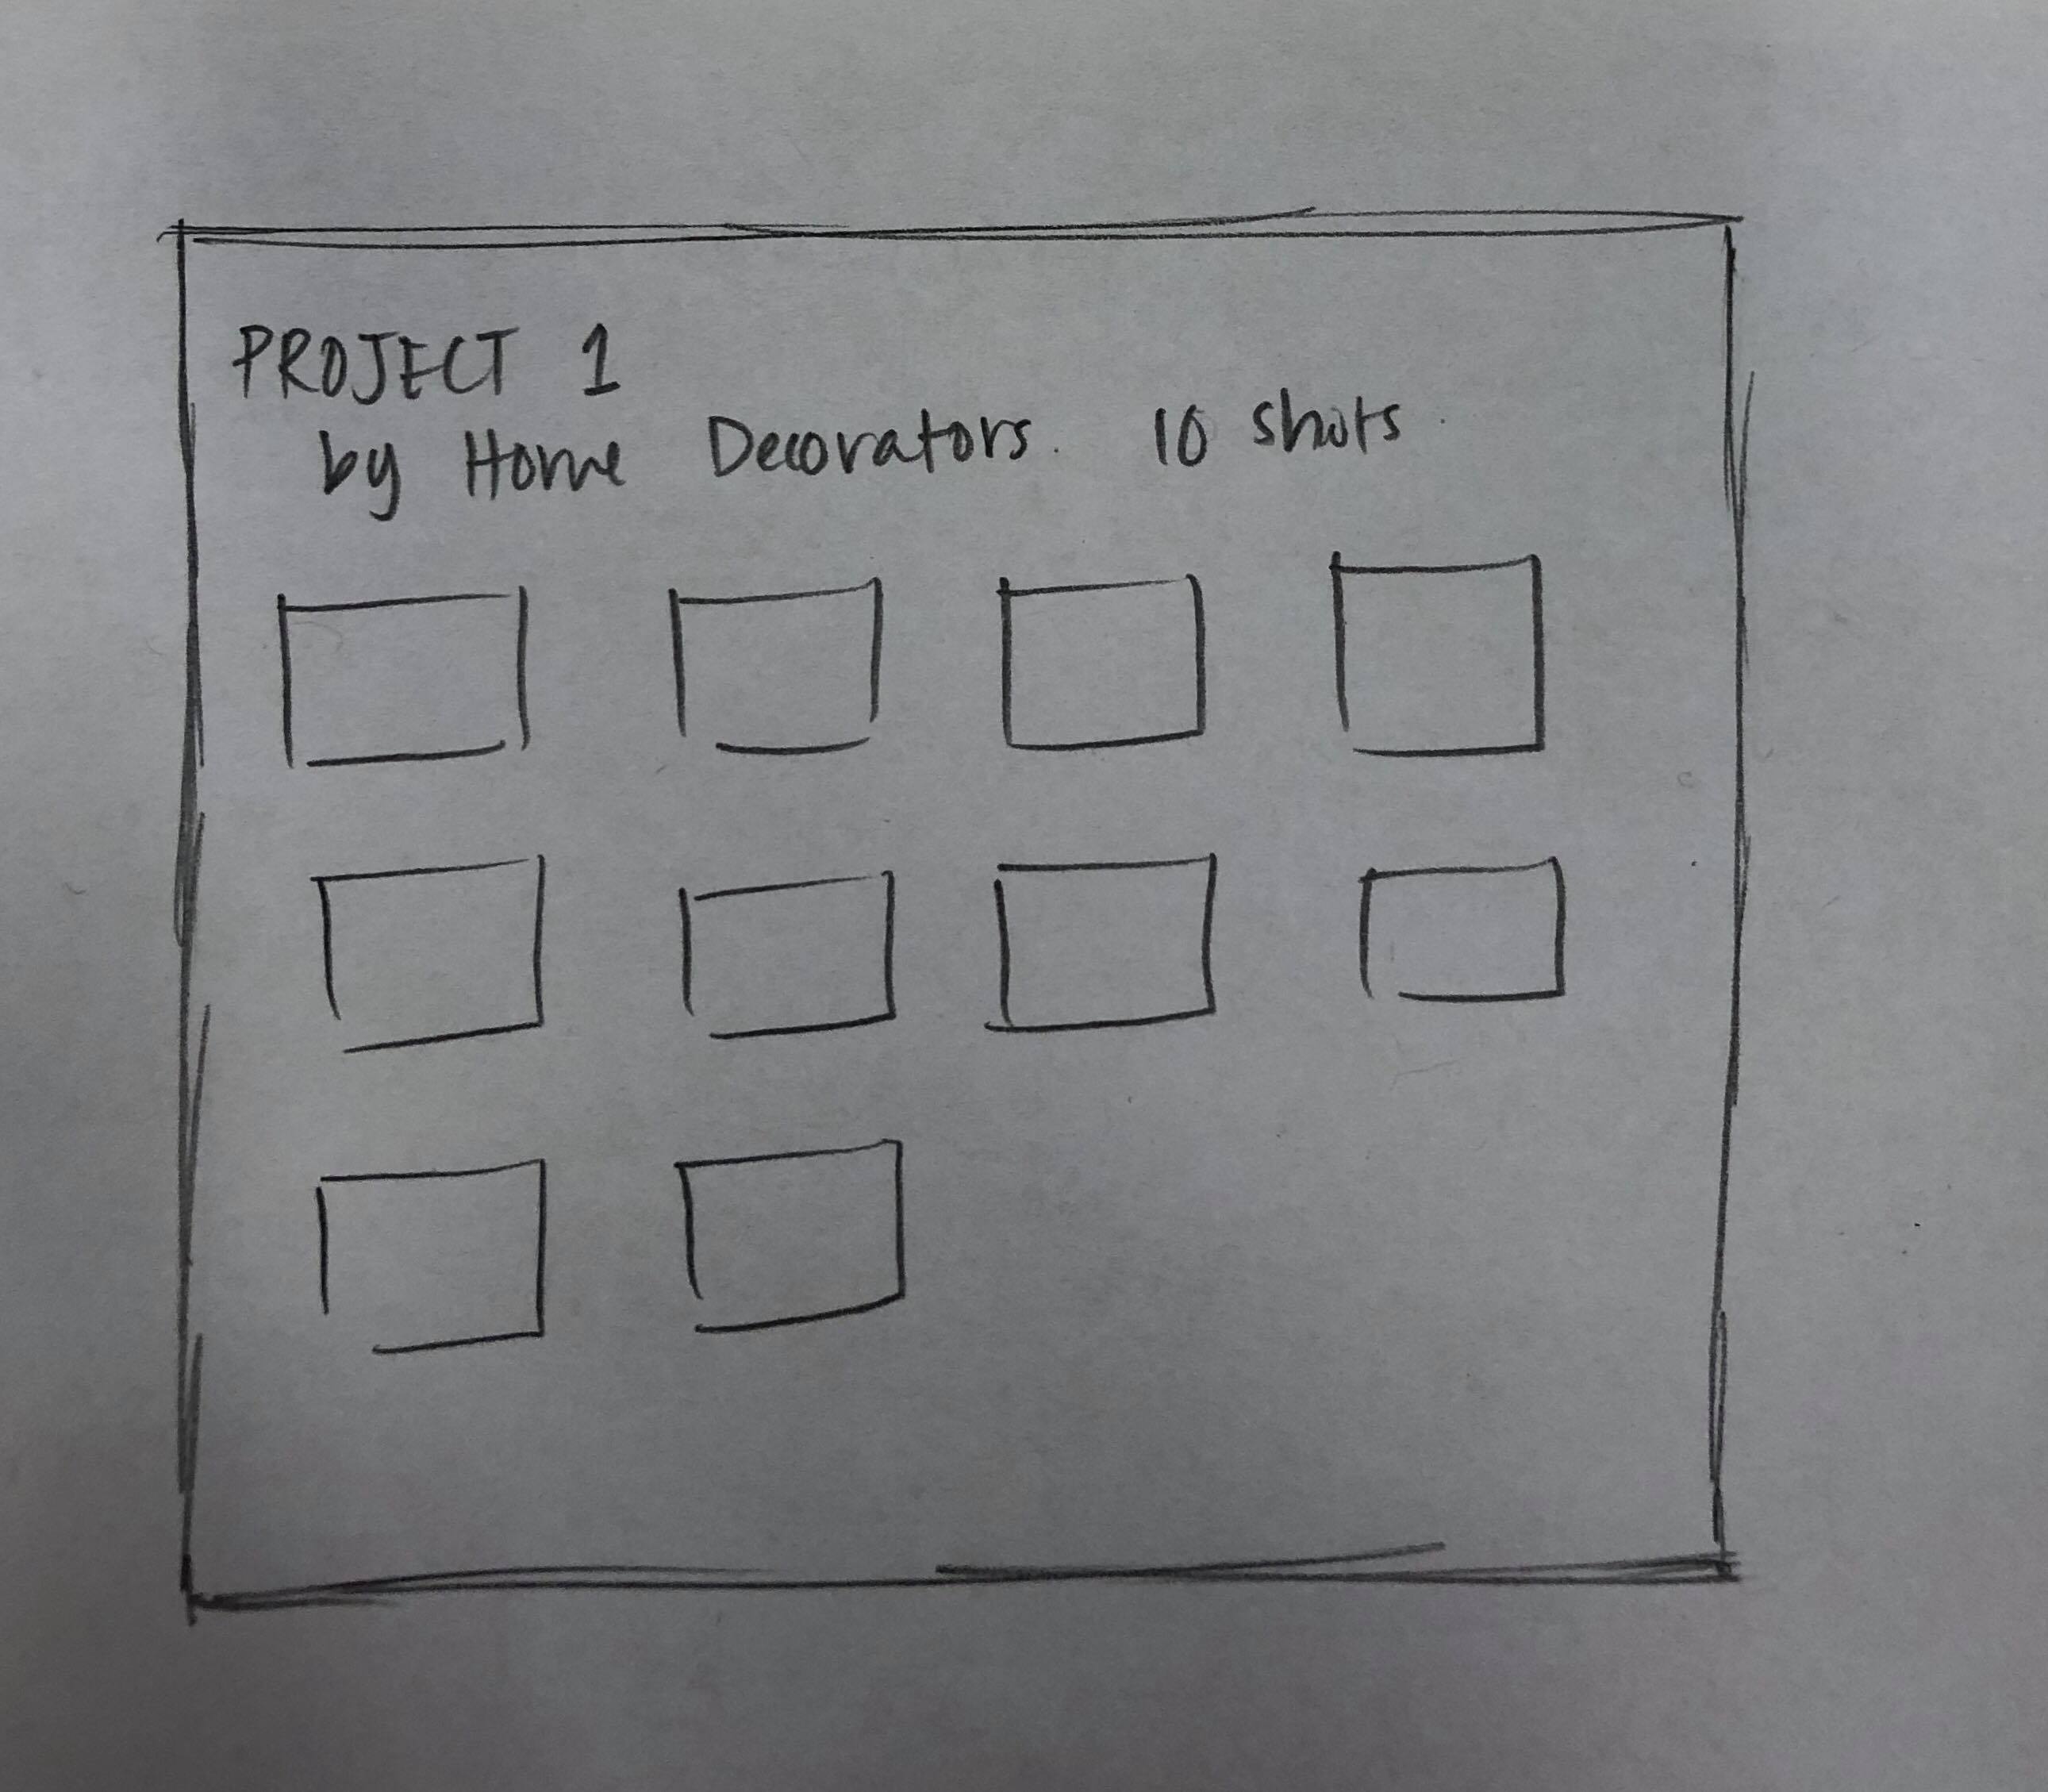 PROJECT 1
by Home Decorators. 10 shots.